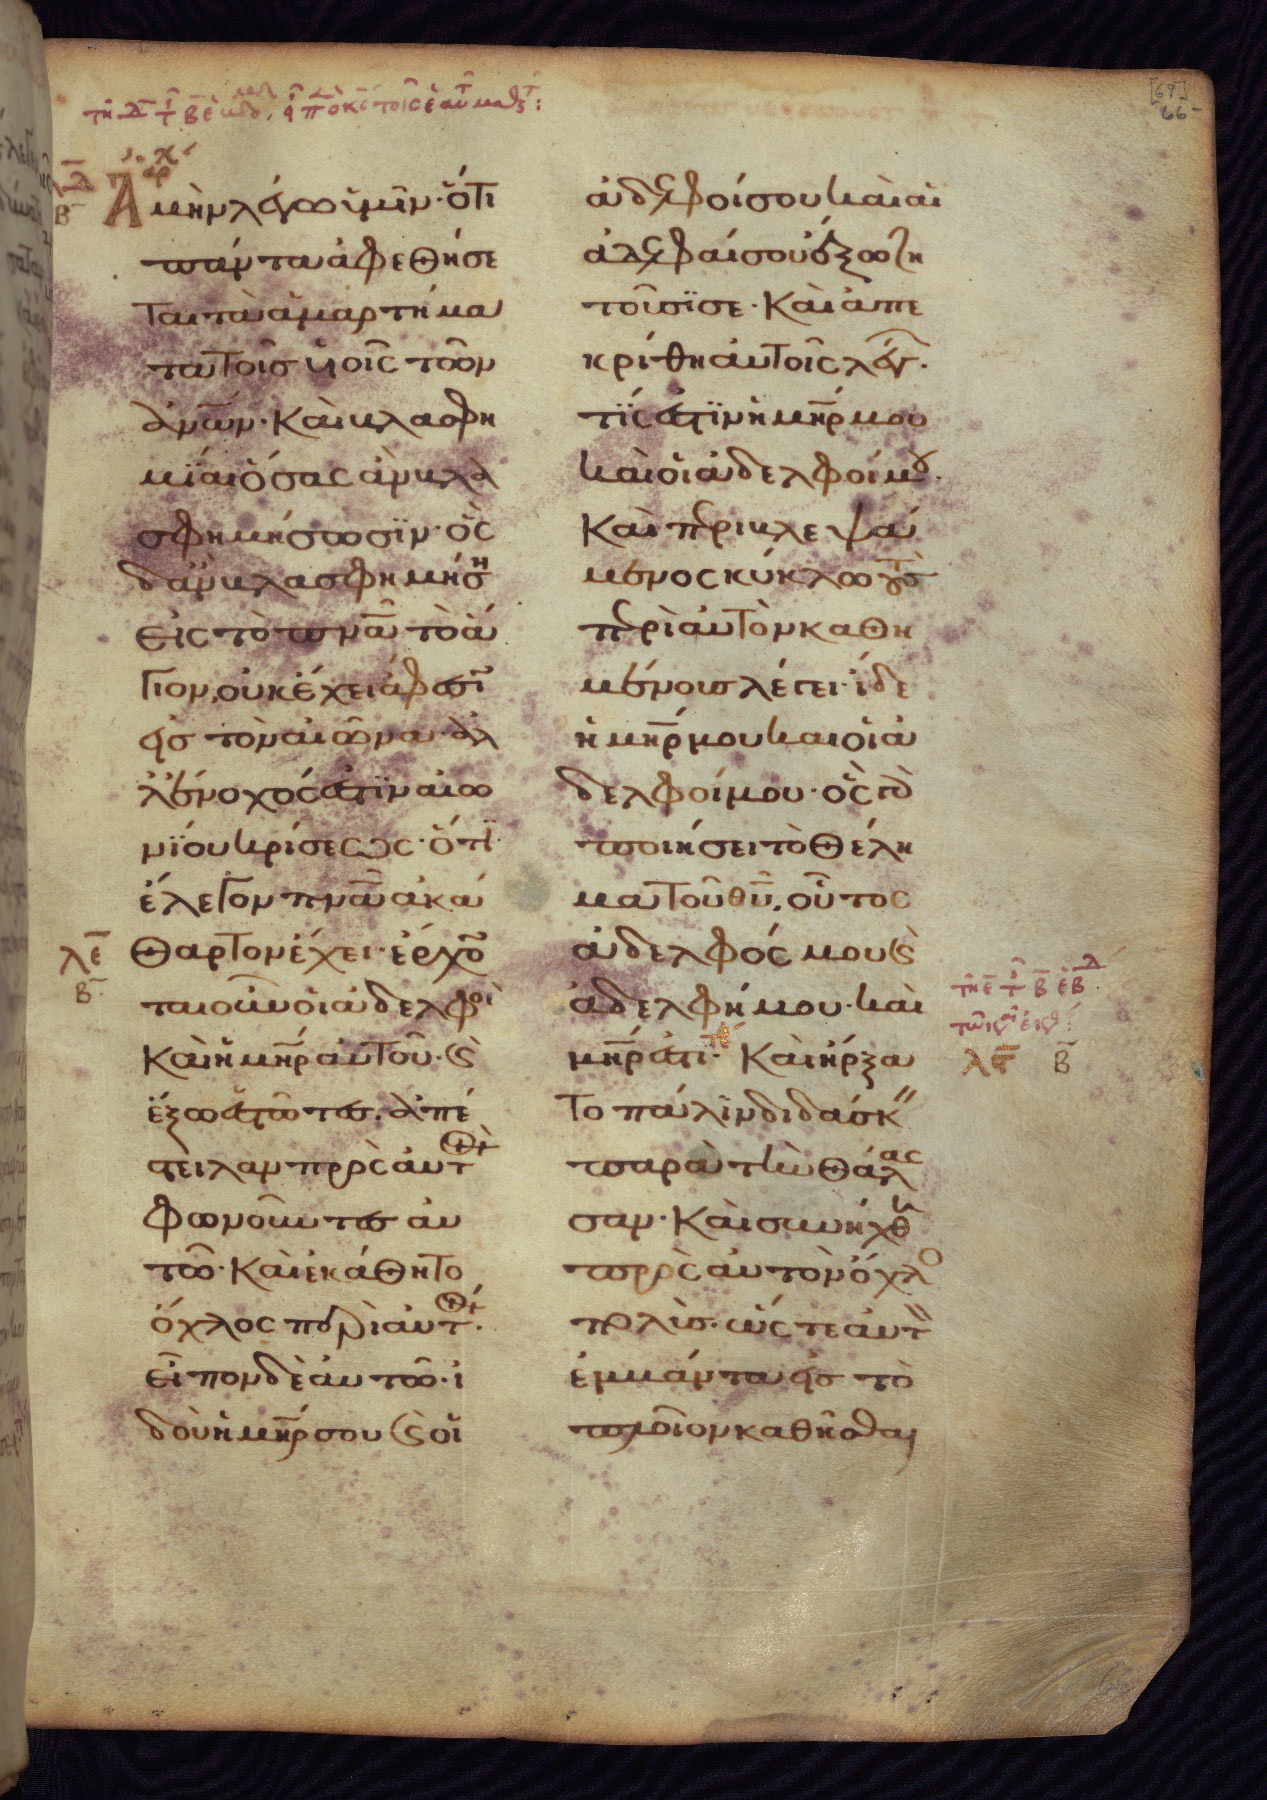 Ἀμὴν λέγω ὑμῖν· ὅτι
πάντα ἀφεθήσε
ται τὰ ἁμαρτήμα
τα τοῖς υἱοῖς τῶν
ἀνῶν· Καὶ βλασφη
μΐαι ὅσας ἂν βλα
σφημήσωσϊν· ὃς
δ' ἂν βλασφημήση
εἰς τὸ πνᾶ τὸ ἅ
γιον, οὐκ ἔχει ἄφεσϊ
εἰς τὸν αἰῶνα· ἀλ
λ' ἔνοχός ἐστϊν αἰω
νΐου κρίσεως· ὅτϊ
ἔλεγον πνᾶ ἀκά
θαρτον ἔχει· ἔρχο
ται οὖν οἱ ἀδελφοὶ
Καὶ ἡ μηρ αὐτοῦ· ϗ
ἔξω ἑστῶτες. ἀπέ
στειλαν πρὸς αὐτ
φωνοῦντες αὐ
τῶ· Καὶ ἐκάθητο
ὄχλος περὶ αὐτ.
εἶπον δὲ αὐτῶ· ἰ
δοὺ ἡ μηρ σου ϗ οἱ
ἀδελφοί σου καὶ αἱ
ἀδελφαί σου ἔξω ζη
τοῦσϊ σε· Καὶ ἀπε
κρίθη αὐτοῖς λέγ.
τΐς ἐστϊν ἡ μηρ μου
καὶ οἱ ἀδελφοί μου.
Καὶ περιβλεψά
μενος κύκλω τοὺς
περὶ αὐτὸν καθη
μένους λέγει· ἴδε
ἡ μηρ μου καὶ οἱ ἀ
δελφοί μου· ὃς γὰρ
ποιήσει τὸ θέλη
μα τοῦ θυ, οὗτος
ἀδελφός μου ϗ
ἀδελφή μου· καὶ
μηρ ἐστι· Καὶ ἤρξα
το πάλιν διδάσκ
παρὰ τὴν θάλας
σαν· Καὶ συνήχθη
πρὸς αὐτὸν ὄχλο
πολὺς· ὥστε αὐτ
ἐμβάντα εἰς τὸ
πλοῖον καθῆσθαι
λε
Β
λς Β